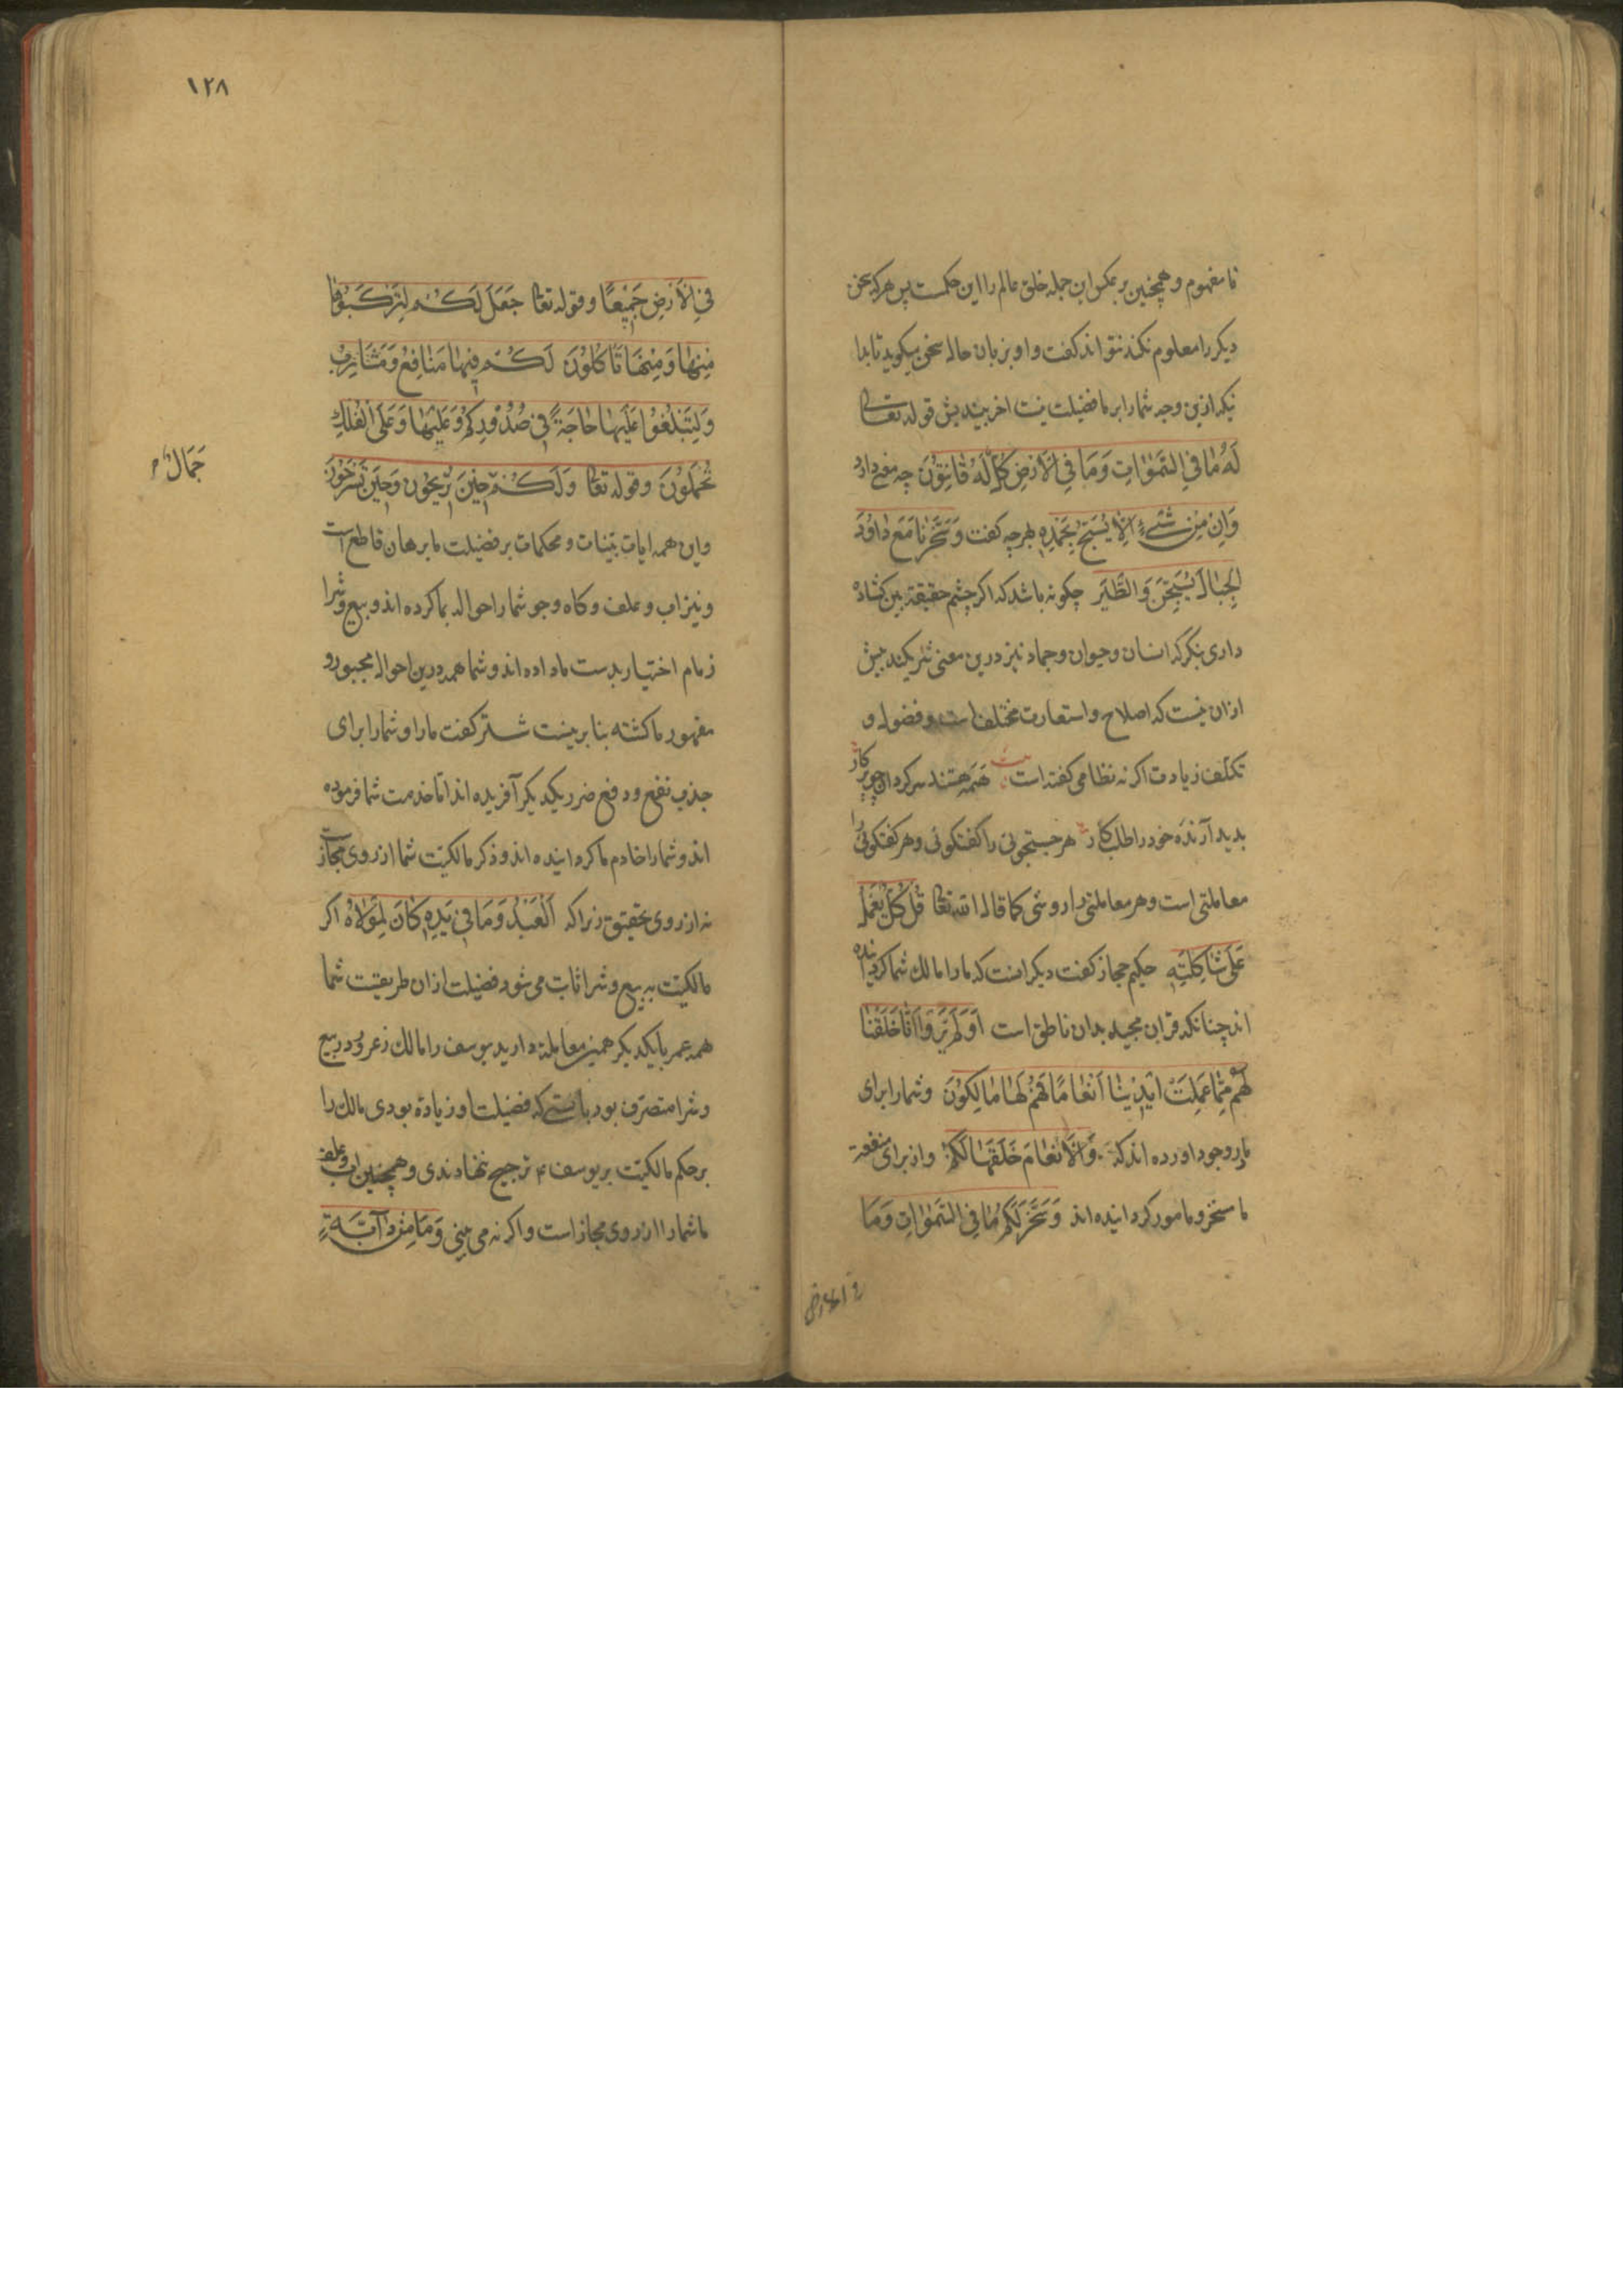 نا مفهوم و همچنین بر عکس این جمله خلق عالم را این حکمت پس هر که سخن
دیکر را معلوم نکند نتواند کفت و او بزبان حال سخن میکوید تا بدا
نیکه ازین وجه شما را بر ما فضیلت نیست اخر بیندیش قوله تعالی
لَهُ مَا فِي السَّمٰوَاتِ وَمَا فِي الْاَرْضِ كُلٌّ لَهُ قَانِتُوْنَ چه معنی دارد
وَاِنْ مِنْ شَيْءٍ اِلَّا يُسَبِّحُ بِحَمْدِهِ بهر چه کفت وَسَخَّرْنَا مَعَ دَاوُدَ
الْجِبَالَ يُسَبِّحْنَ وَالطَّيْرَ چکونه باشد که اکر چشم حقیقة بین کشاده
داری بنکر که انسان و حیوان و جماد نیز درین معنی شریکند بیش
ازان نیست که اصلاح و استعارت مختلف است و فضول و
تکلف زیادت اکر نه نظامی کفته است بیت همه هستند سرکردان چو پرکار
پدید آرنده خود را طلبکار هر جستجوئی را کفتکوئی و هر کفتکوئی را
معاملتی است و هر معاملتی را روشی کما قال الله تعالی قُلْ كُلٌّ يَعْمَلُ
عَلٰى شَاكِلَتِهِ حکیم حجاز کفت دیکر انست که ما را مالک شما کردانیده
اند چنانکه قران مجید بدان ناطق است اَوَلَمْ يَرَوْا اَنَّا خَلَقْنَا
لَهُمْ مِمَّا عَمِلَتْ اَيْدِيْنَا اَنْعَامًا فَهُمْ لَهَا مَالِكُوْنَ و شما را برای
ما در وجود اورده اند که وَالْاَنْعَامَ خَلَقَهَا لَكُمْ و از برای منفعة
ما مسخر و مامور کردانیده اند وَسَخَّرَ لَكُمْ مَا فِي السَّمٰوَاتِ وَمَا
فی الارض
١٢٨
فِي الْاَرْضِ جَمِيْعًا و قوله تعالی جَعَلَ لَكُمْ لِتَرْكَبُوْا
مِنْهَا وَمِنْهَا تَاْكُلُوْنَ لَكُمْ فِيْهَا مَنَافِعُ وَمَشَارِبُ
وَلِتَبْلُغُوْا عَلَيْهَا حَاجَةً فِيْ صُدُوْرِكُمْ وَعَلَيْهَا وَعَلَى الْفُلْكِ
تُحْمَلُوْنَ و قوله تعالی وَلَكُمْ حِيْنَ تُرِيْحُوْنَ وَحِيْنَ تَسْرَحُوْنَ
جَمَالٌ
واین همه ایات بینات و محکمات بر فضیلت ما برهان قاطع است
و نیز اب و علف و کاه و جو شما را حواله بما کرده اند و بیع و شرا
زمام اختیار بدست ما داده اند و شما همه درین احوال مجبور و
مقهور ما کشته بنابرینست شتر کفت ما را و شما را برای
جذب نفع و دفع ضرر یکدیکر آفریده اند اما خدمت شما فرموده
اند و شما را خادم ما کردانیده اند و ذکر مالکیت شما از روی مجاز است
نه از روی تحقیق زیرا که اَلْعَبْدُ وَمَا فِيْ يَدِهِ كَانَ لِمَوْلَاهُ اکر
مالکیت به بیع و شرا ثابت می شود فضیلت ازان طریقیت شما
همه عمر با یکدیکر همین معاملة دارید یوسف را مالک زعر ودر بیع
و شرا متصرف بود بایستی که فضیلت او زیاده بودی مالک را
بر حکم مالکیت بر یوسف ع ترجیح نهادندی و همچنین اب و علف
ما شما را از روی مجاز است و اکر نه می بینی وَمَا مِنْ دَآبَّةٍ